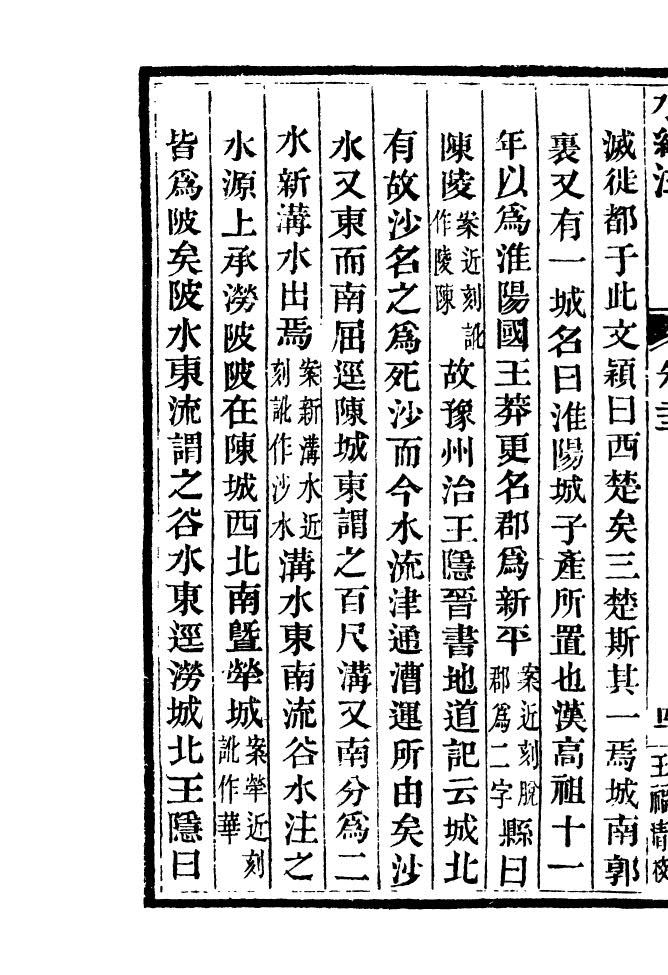 滅徙都于此文頴曰西楚矣三楚斯其一焉城南郭
裏又有一城名曰淮陽城子產所置也漢高祖十一
年以爲淮陽國王莽更名郡爲新平案近刻脫郡爲二字縣曰
陳陵案近刻訛作陵陳故豫州治王隱晉書地道記云城北
有故沙名之爲死沙而今水流津通漕運所由矣沙
水又東而南屈逕陳城東謂之百尺溝又南分爲二
水新溝水出焉案新溝水近刻訛作沙水溝水東南流谷水注之
水源上承澇陂陂在陳城西北南曁犖城案犖近刻訛作華
皆爲陂矣陂水東流謂之谷水東逕澇城北王隱曰